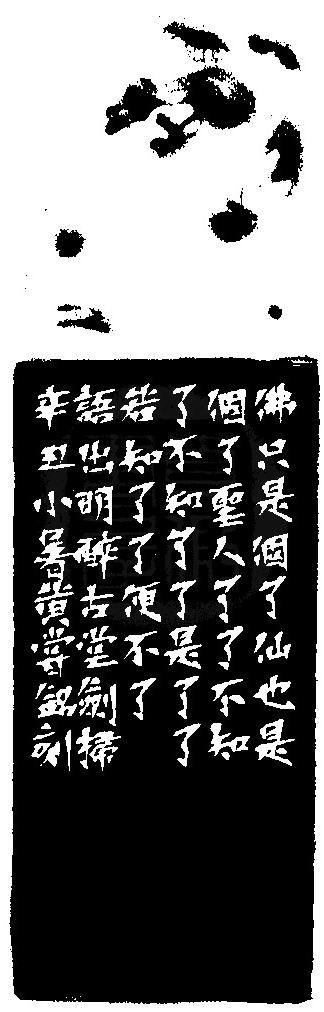 佛只是個了仙也是
個了聖人了了不知
了不知了了是了了
若知了了便不了
語出明醉古堂劍掃
辛丑小暑黃嘗銘刻